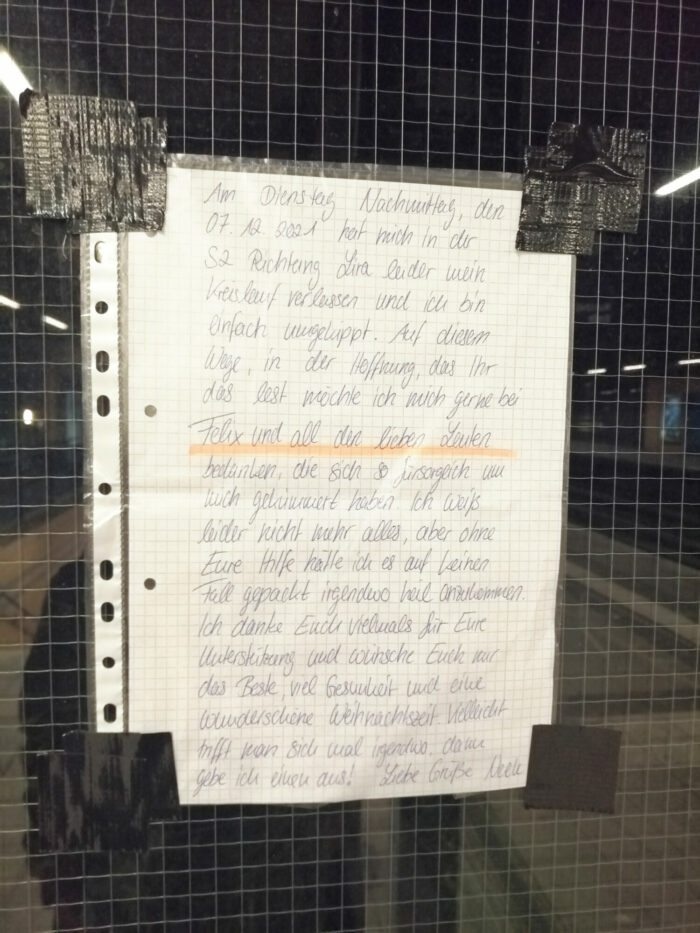 Am Dienstag Nachmittag, den
07.12.2021 hat mich in der
S2 Richtung leider mein
Kreislauf verlassen und ich bin
einfach umgekippt. Auf diesem
Wege, in der Hoffnung, das Ihr
das lest möchte ich mich gerne bei
Felix und all den lieben Leuten
bedanken, die sich so fürsorglich um
mich gekümmert haben. Ich weiß
leider nicht mehr alles, aber ohne
Eure Hilfe hätte ich es auf keinen
Fall gepackt irgendwo heil anzukommen.
Ich danke Euch vielmals für Eure
Unterstützung und wünsche Euch nur
das Beste, viel Gesundheit und eine
wunderschöne Weihnachtszeit. Vielleicht
trifft man sich mal irgendwo, dann
gebe ich einen aus! Liebe Grüße